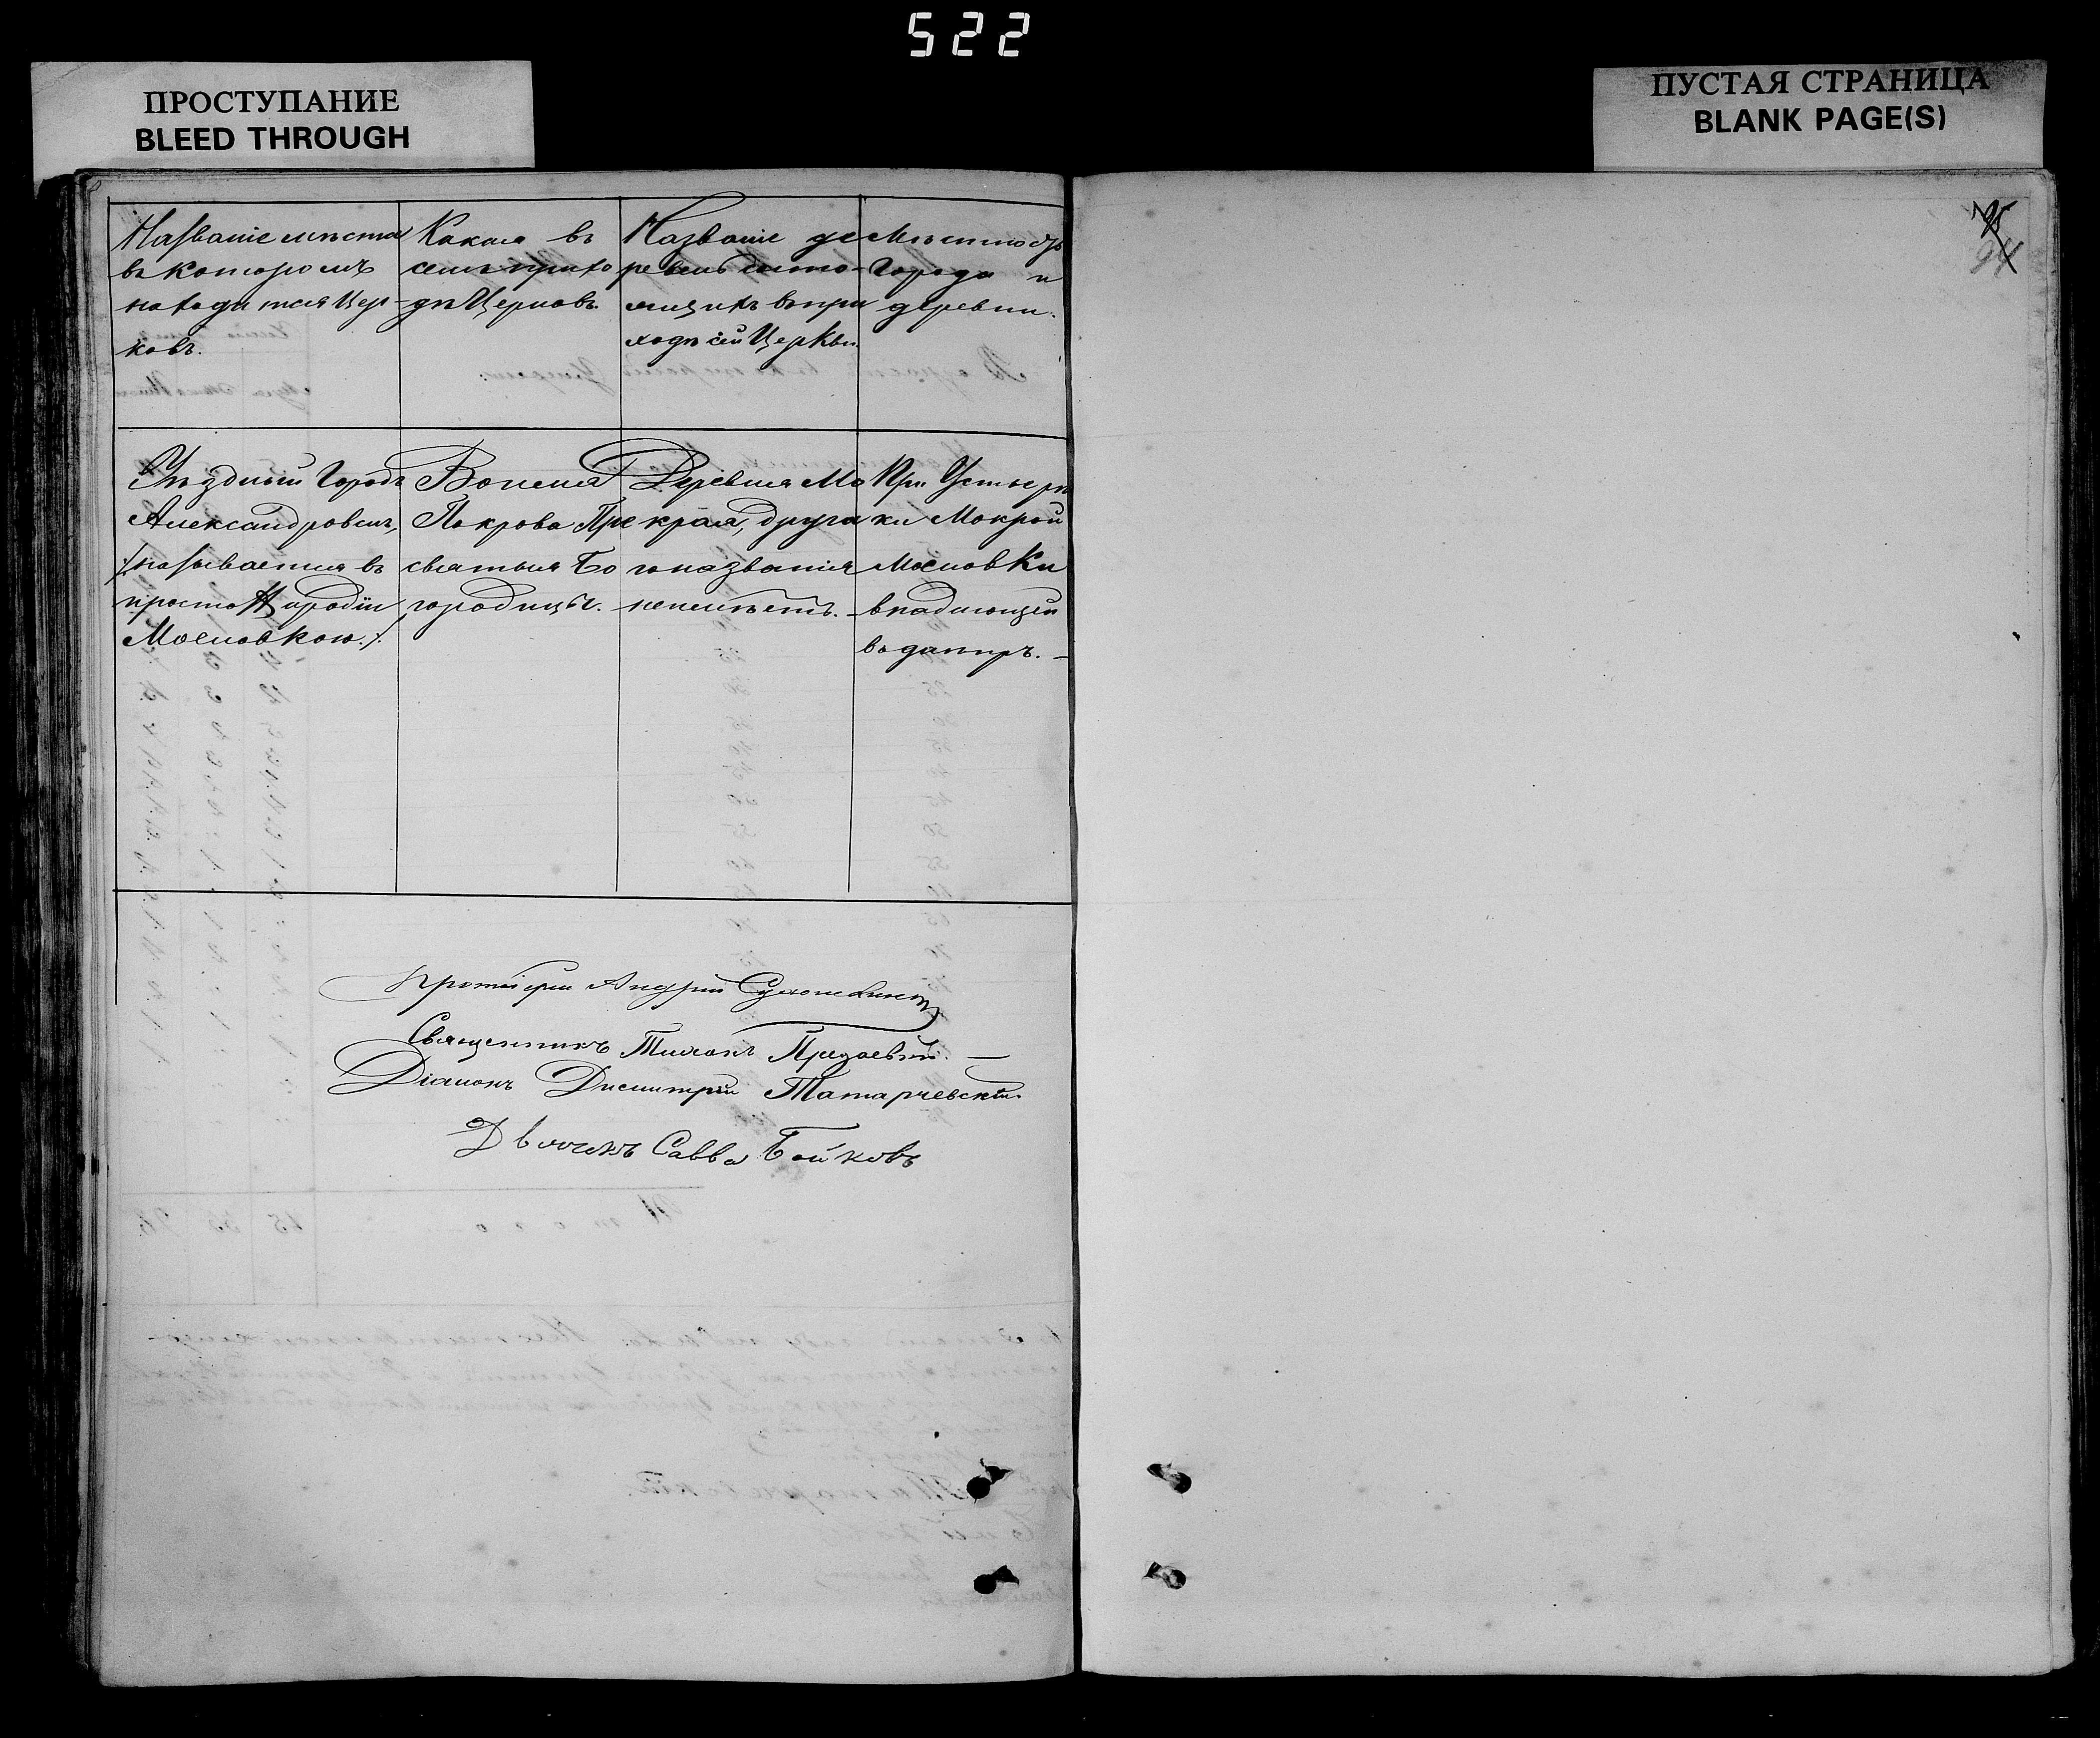 522
ПРОСТУПАНИЕ
BLEED THROUGH
ПУСТАЯ СТРАНИЦА
BLANK PAGE(S)
94
Названіе мѣста
въ которомъ
находится Цер-
ковь.
Какая въ
семъ прихо
дѣ Церковь.
Названіе де
ревень состо-
ящихъ въ при
ходѣ сей Церкви
Мѣстность
Города и
деревни.
Уѣздный Городъ
Александровскъ,
/:называется въ
просто Народіи
Московкою:/
Во имя
Покрова Пре
святыя Бо
городицы.
Деревня Мо
края, друга
го названія
не имѣетъ. –
При Устье рѣ
ки Мокрой
Московки
впадающей
въ днѣпръ. –
Протоіерей Андрей
Священникъ Тихонъ –
Діаконъ Димитрій Татарчевскій.
Дьячекъ Савва Бойковъ